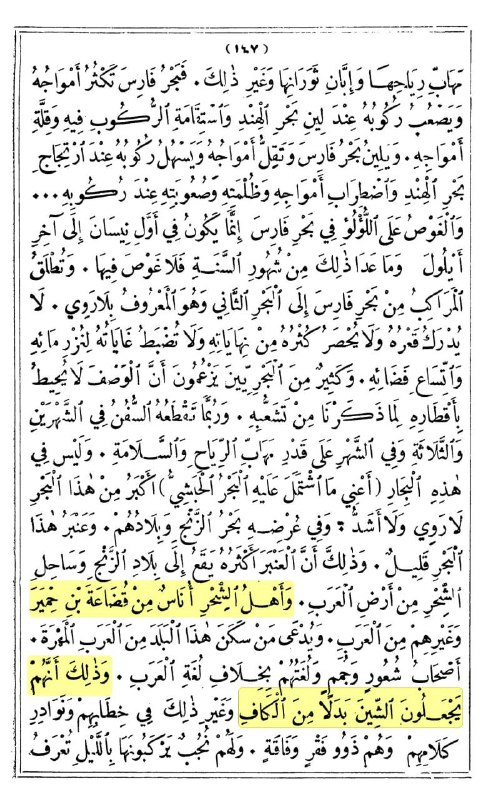 (١٤٧)
مَهَابِّ رِيَاحِهَا وَإِبَّانِ ثَوَرَانِهَا وَغَيْرِ ذٰلِكَ. فَبَحْرُ فَارِسَ تَكْثُرُ أَمْوَاجُهُ
وَيَصْعُبُ رُكُوبُهُ عِنْدَ لِينِ بَحْرِ ٱلْهِنْدِ وَٱسْتِقَامَةِ ٱلرُّكُوبِ فِيهِ وَقِلَّةِ
أَمْوَاجِهِ. وَيَلِينُ بَحْرُ فَارِسَ وَتَقِلُّ أَمْوَاجُهُ وَيَسْهُلُ رُكُوبُهُ عِنْدَ ٱرْتِجَاجِ
بَحْرِ ٱلْهِنْدِ وَٱضْطِرَابِ أَمْوَاجِهِ وَظُلْمَتِهِ وَصُعُوبَتِهِ عِنْدَ رُكُوبِهِ ...
وَٱلْغَوْصُ عَلَى ٱللُّؤْلُؤِ فِي بَحْرِ فَارِسَ إِنَّمَا يَكُونُ فِي أَوَّلِ نِيسَانَ إِلَى آخِرِ
أَيْلُولَ وَمَا عَدَا ذٰلِكَ مِنْ شُهُورِ ٱلسَّنَةِ فَلَا غَوْصَ فِيهَا. وَتُطْلَقُ
ٱلْمَرَاكِبُ مِنْ بَحْرِ فَارِسَ إِلَى ٱلْبَحْرِ ٱلثَّانِي وَهُوَ ٱلْمَعْرُوفُ بِلَارَوِي. لَا
يُدْرَكُ قَعْرُهُ وَلَا يُحْصَرُ كُثْرُهُ مِنْ نِهَايَاتِهِ وَلَا تُضْبَطُ غَايَاتُهُ لِغُزْرِ مَائِهِ
وَٱتِّسَاعِ فَضَائِهِ. وَكَثِيرٌ مِنَ ٱلْبَحْرِيِّينَ يَزْعُمُونَ أَنَّ ٱلْوَصْفَ لَا يُحِيطُ
بِأَقْطَارِهِ لِمَا ذَكَرْنَا مِنْ تَشَعُّبِهِ. وَرُبَّمَا تَقْطَعُهُ ٱلسُّفُنُ فِي ٱلشَّهْرَيْنِ
وَٱلثَّلَاثَةِ وَفِي ٱلشَّهْرِ عَلَى قَدْرِ مَهَابِّ ٱلرِّيَاحِ وَٱلسَّلَامَةِ. وَلَيْسَ فِي
هٰذِهِ ٱلْبِحَارِ (أَعْنِي مَا ٱشْتَمَلَ عَلَيْهِ ٱلْبَحْرُ ٱلْحَبَشِيُّ) أَكْبَرُ مِنْ هٰذَا ٱلْبَحْرِ
لَارَوِي وَلَا أَشَدُّ: وَفِي عُرْضِهِ بَحْرُ ٱلزَّنْجِ وَبِلَادُهُمْ. وَعَنْبَرُ هٰذَا
ٱلْبَحْرِ قَلِيلٌ. وَذٰلِكَ أَنَّ ٱلْعَنْبَرَ أَكْثَرُهُ يَقَعُ إِلَى بِلَادِ ٱلزَّنْجِ وَسَاحِلِ
ٱلشِّحْرِ مِنْ أَرْضِ ٱلْعَرَبِ. وَأَهْلُ ٱلشِّحْرِ أُنَاسٌ مِنْ قُضَاعَةَ بْنِ حِمْيَرَ
وَغَيْرِهِمْ مِنَ ٱلْعَرَبِ. وَيُدْعَى مَنْ سَكَنَ هٰذَا ٱلْبَلَدَ مِنَ ٱلْعَرَبِ ٱلْمَهْرَةَ.
أَصْحَابُ شُعُورٍ وَجُمَمٍ وَلُغَتُهُمْ بِخِلَافِ لُغَةِ ٱلْعَرَبِ. وَذٰلِكَ أَنَّهُمْ
يَجْعَلُونَ ٱلشِّينَ بَدَلًا مِنَ ٱلْكَافِ وَغَيْرِ ذٰلِكَ فِي خِطَابِهِمْ وَنَوَادِرِ
كَلَامِهِمْ وَهُمْ ذَوُو فَقْرٍ وَفَاقَةٍ. وَلَهُمْ نُجُبٌ يَرْكَبُونَهَا بِٱللَّيْلِ تُعْرَفُ